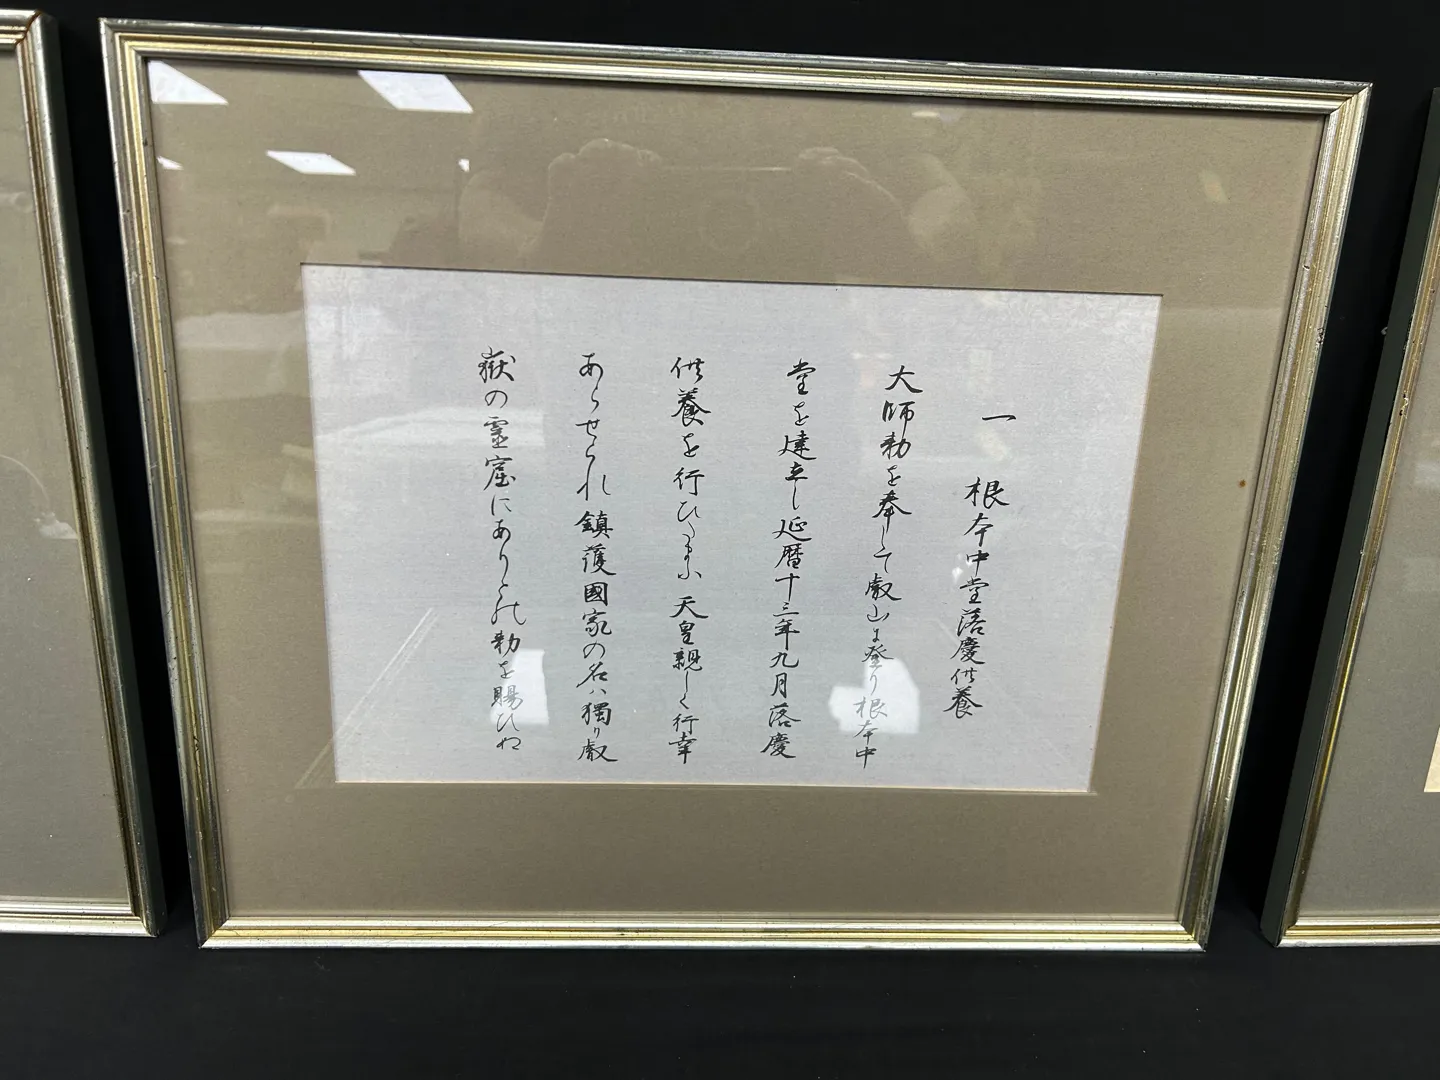 一 根本中堂落慶供養
大師勅を奉して叡山に登り根本中
堂を建立し延暦十三年九月落慶
供養を行ひたまふ 天皇親しく行幸
あらせられ鎮護國家の名ハ獨り叡
嶽の霊窟にありとの勅を賜ひぬ